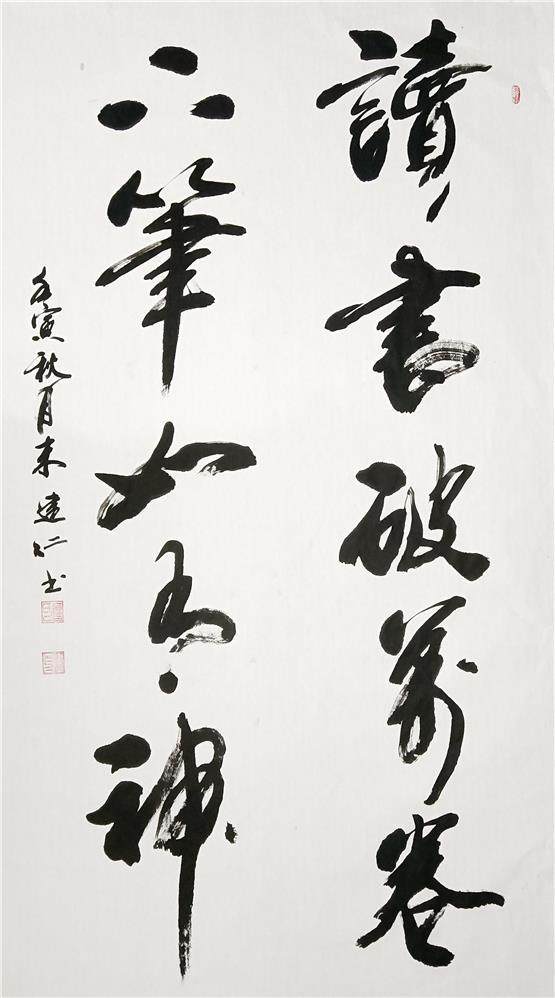 讀書破萬卷
下筆如有神
壬寅秋月朱建仁書